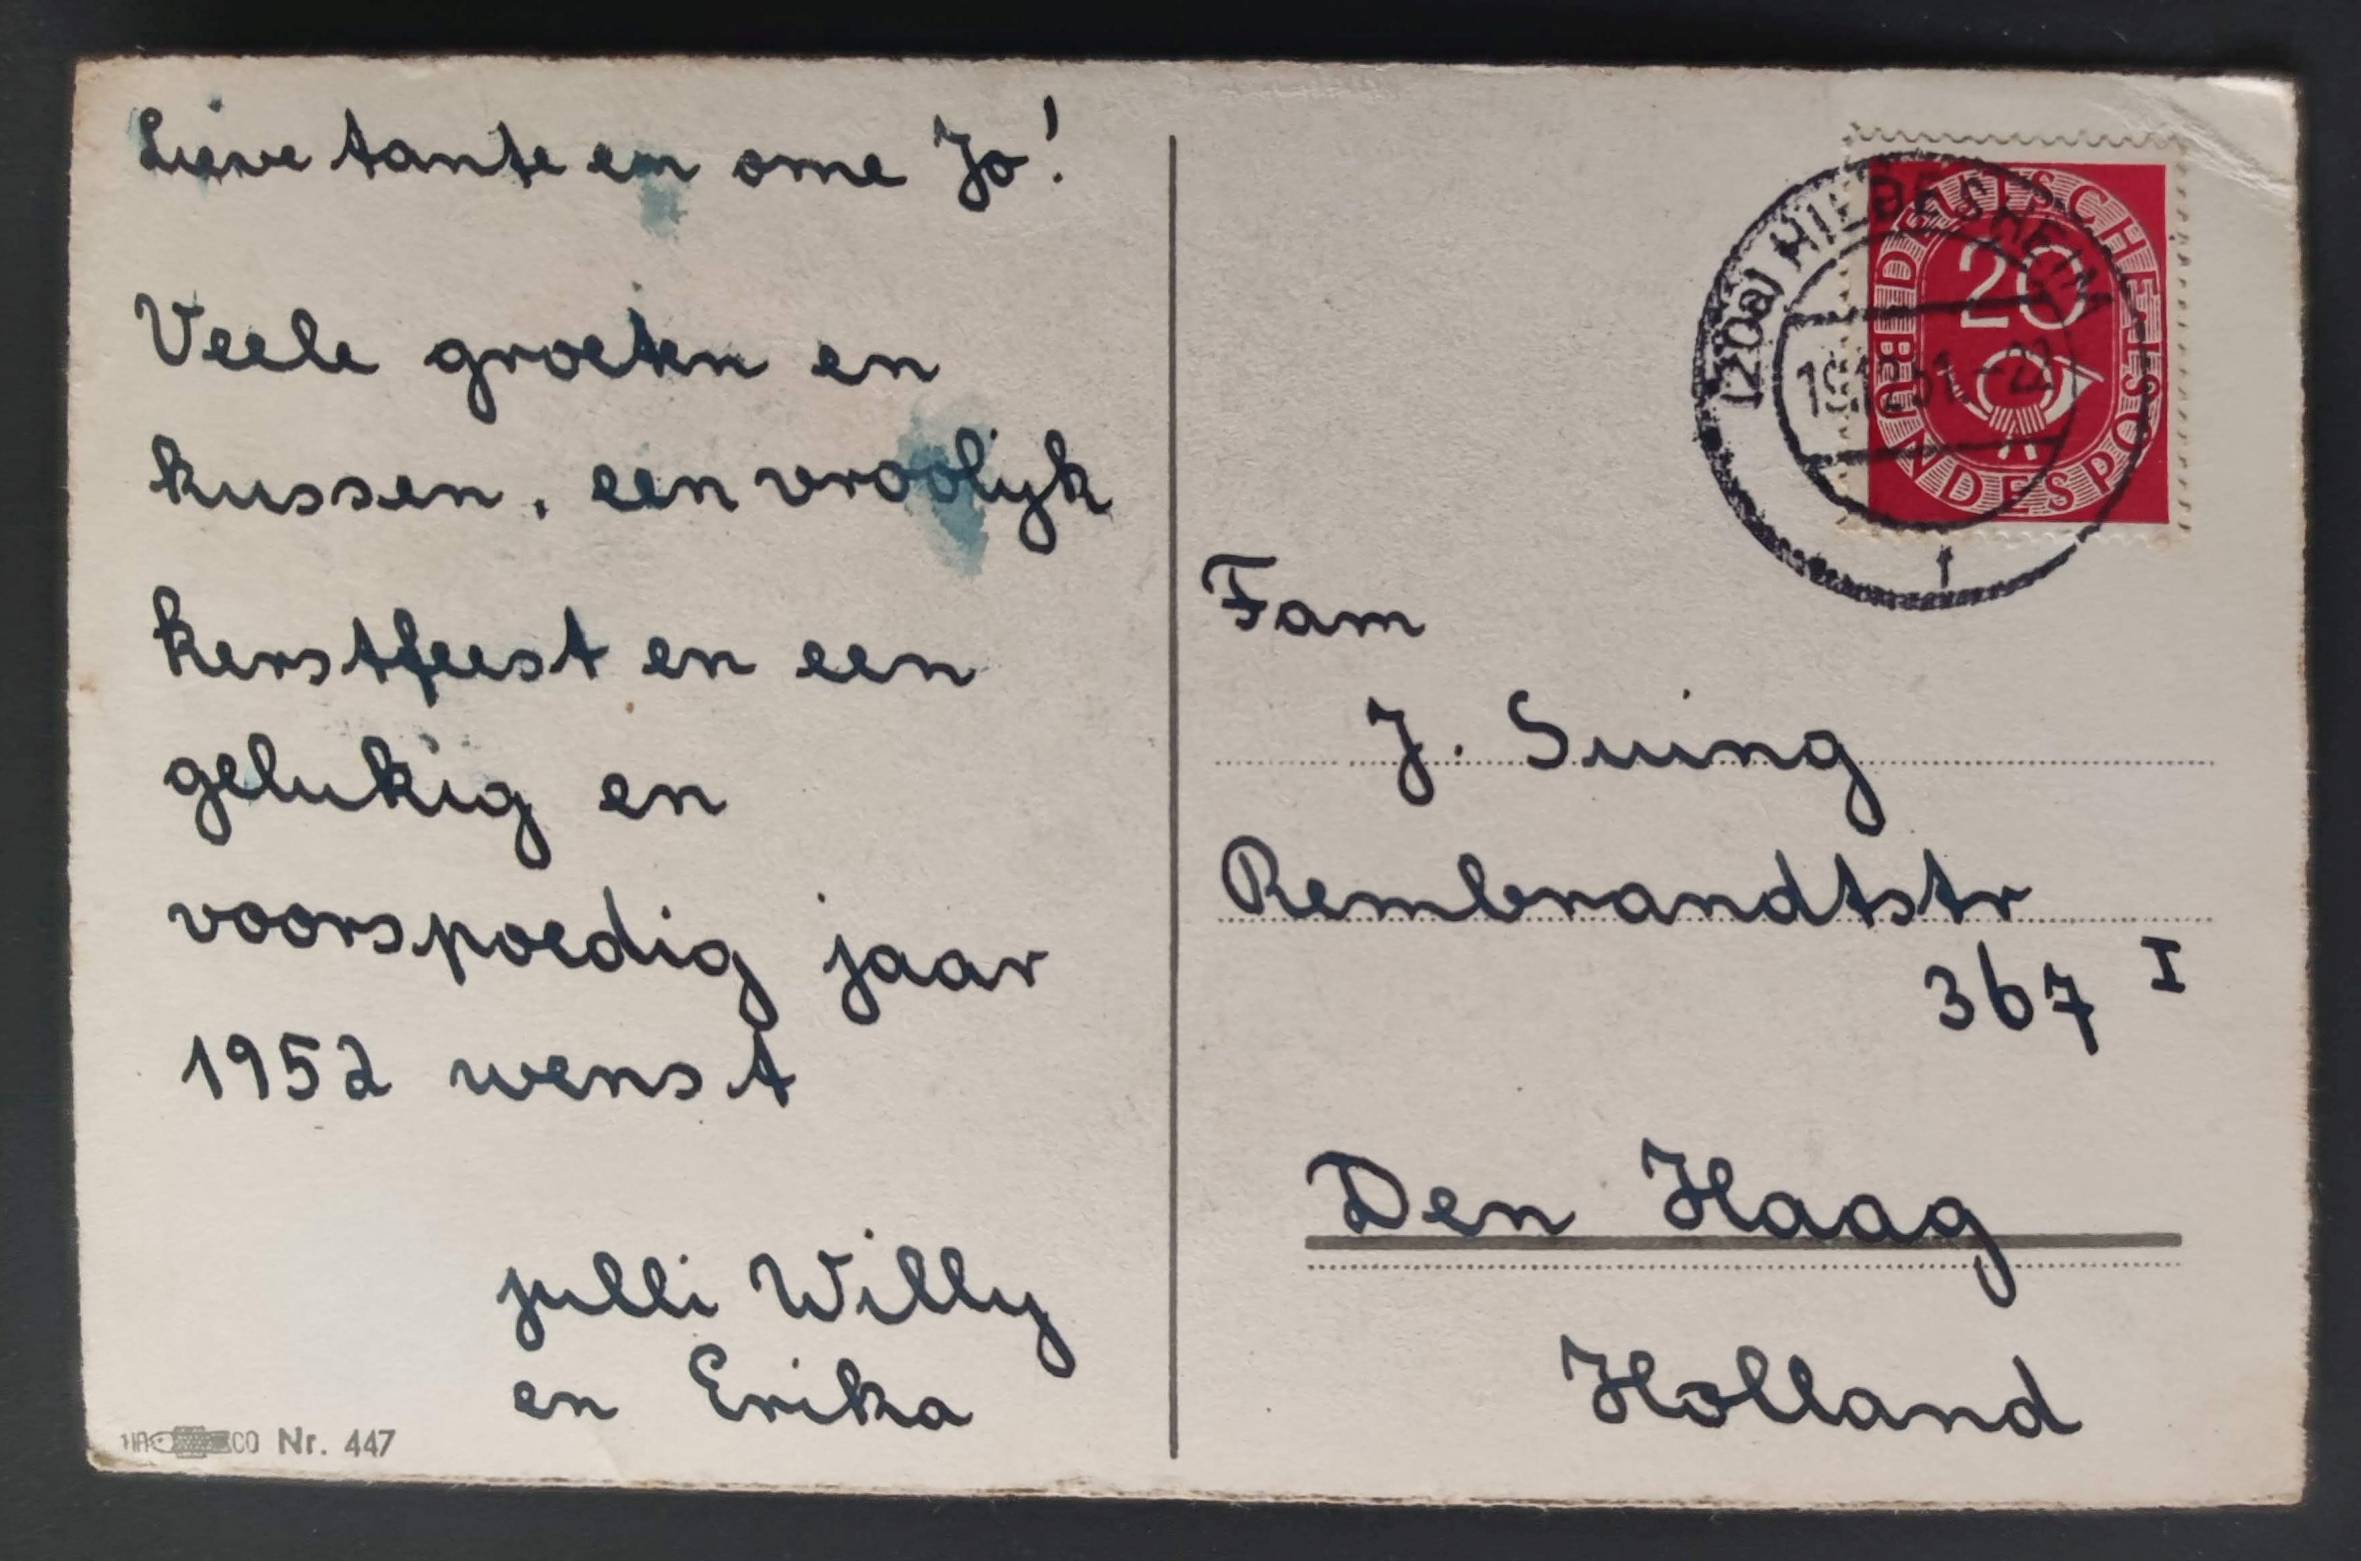 Lieve tante en ome Jo!
Veele groeten en
kussen, een vroolijk
kerstfeest en een
gelukkig en
voorspoedig jaar
1952 wenst
julli Willy
en Erika
Nr. 447
(20a) HILDESHEIM
19.12.51.-22
f
DEUTSCHE BUNDESPOST
20
Fam
J. Suing
Rembrandtstr
367 I
Den Haag
Holland